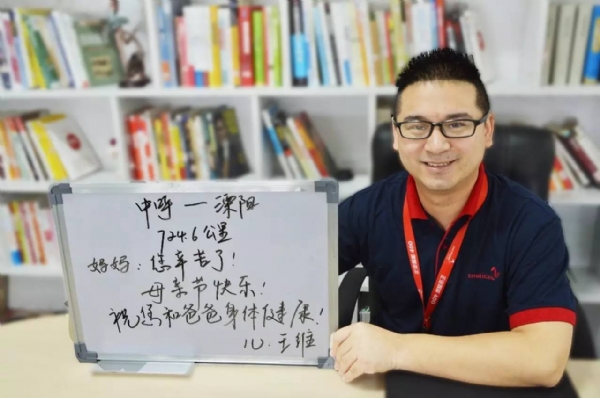 中呼 — 溧阳
724.6公里
妈妈:您辛苦了!
母亲节快乐!
祝您和爸爸身体健康!
儿.于维